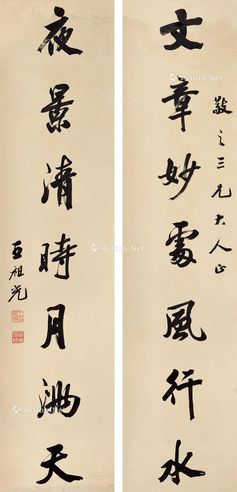 敬之三兄大人正
文章妙處風行水
夜景清時月滿天
王祖光
Artron.Net